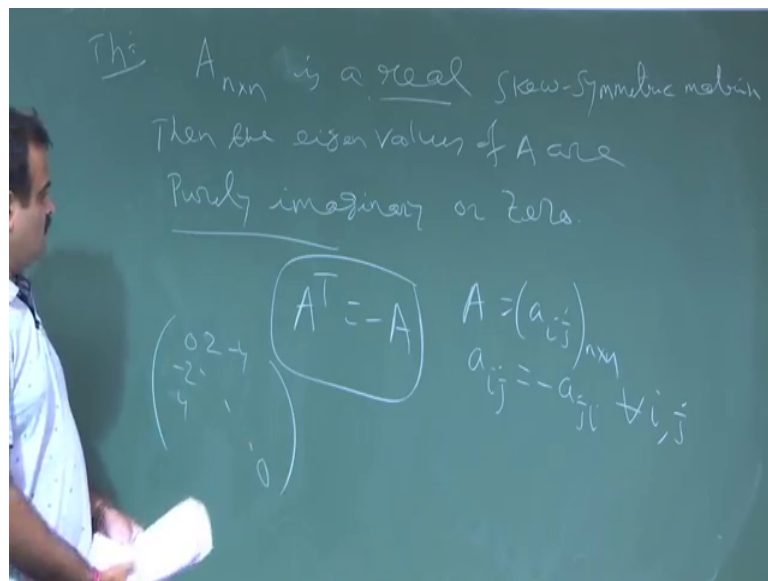 Th:
A_{n×n} is a real Skew-Symmetric matrix
Then the eigen values of A are
Purely imaginary or Zero.
A^T = -A
A = (a_{ij})_{n×n}
a_{ij} = -a_{ji} ∀ i, j
0 2 -4
-2
4
0